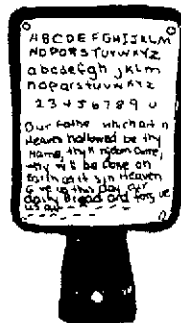 ABCDEFGHIJKLM
NOPQRSTUVWXYZ
abcdefgh jklm
nopqrstuvwxyz
1 2 3 4 5 6 7 8 9 0
Our Fathe which art n
Heaven Hallowed be thy
Name, thy k ngdom Come,
thy w ll be done on
Earth as it s in Heaven
G ve us this day our
daily Bread and forg ve
us our